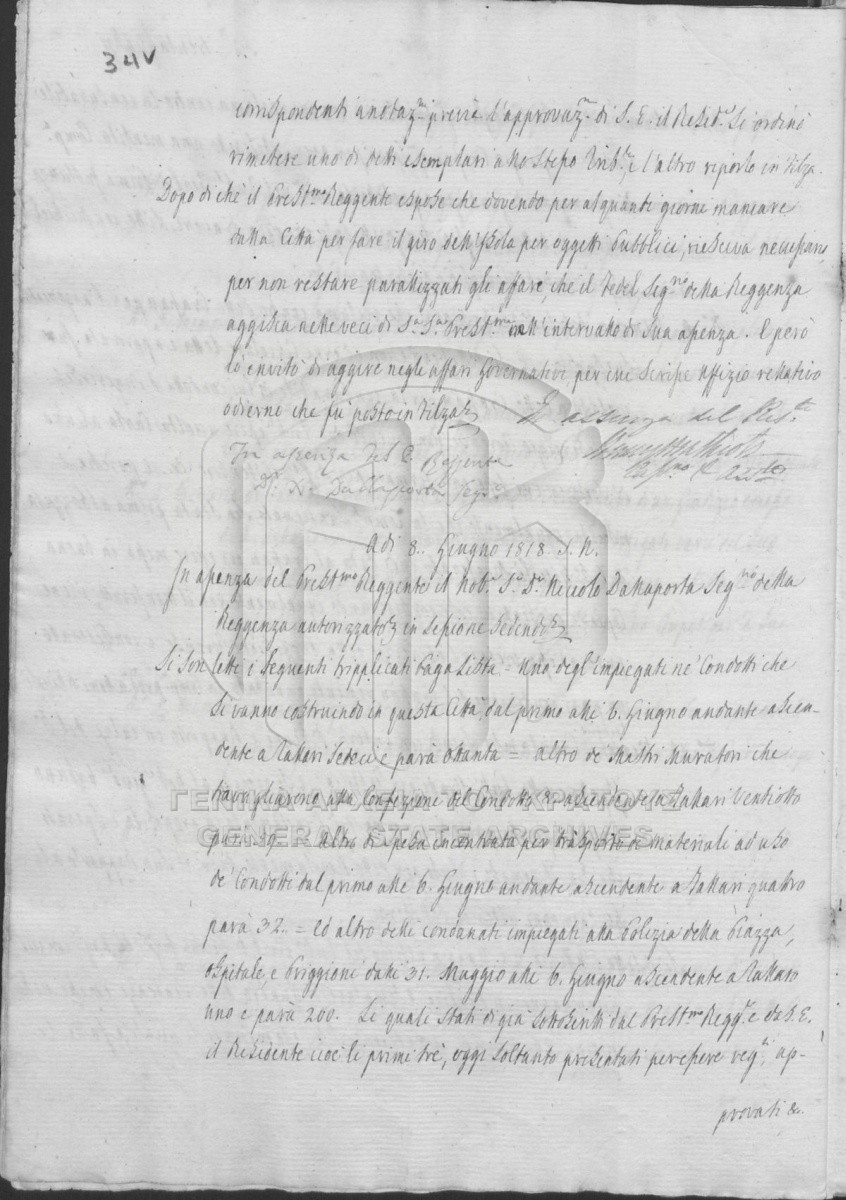 34v
corrispondenti annotaz.ni previa l'approvaz.n di S. E. il Resid.e Si ordinò
rimettere uno di detti esemplari allo stesso Trib.e e l'altro riporlo in filza.
Dopo di chè il Prest.mo Reggente espose che dovendo per alquanti giorni mancare
dalla Città per fare il giro dell'Isola per oggetti pubblici, riesciva necessario,
per non restare parallizzati gli affari, che il Fedel Seg.rio della Reggenza
aggisca nelle veci di S.a S.a Prest.ma nell'intervallo di sua assenza. E però
lo invitò di aggire negli affari Governativi per cui scrisse Uffizio rellativo
odierno che fù posto in filza
In assenza del Res.te
In assenza del P. Reggente
D.r N. Dallaporta Seg.rio
Adi 8.. Giugno 1818. S. N.
In assenza del Prest.mo Reggente il Nob.e S.r D.r Niccolò Dallaporta Seg.rio della
Reggenza autorizzato in sessione sedendo
Si son letti i seguenti tripplicati Paga Lista - Uno degl'impiegati ne' Condotti che
si vanno costruendo in questa Città dal primo alli 6. Giugno andante ascen-
dente a Tallari sedeci e parà ottanta = altro de Mastri Muratori che
travagliarono alla Confezione del Condotto &. ascendente a Tallari ventiotto
Altro di spesa incontrata per trasporto di materiali ad uso
de' Condotti dal primo alli 6. Giugno andante ascendente a Tallari quattro
parà 32.. = Ed altro delli condanati impiegati alla Polizia della Piazza,
Ospitale, e Priggioni dalli 31. Maggio alli 6. Giugno ascendente a Tallaro
uno e parà 200. Li quali stati di già sottoscritti dal Prest.mo Regg.e e da S. E.
il Residente cioè li primi trè, oggi soltanto presentati per essere reg.ti, ap-
provati &.
ΓΕΝΙΚΑ ΑΡΧΕΙΑ ΤΟΥ ΚΡΑΤΟΥΣ
GENERAL STATE ARCHIVES